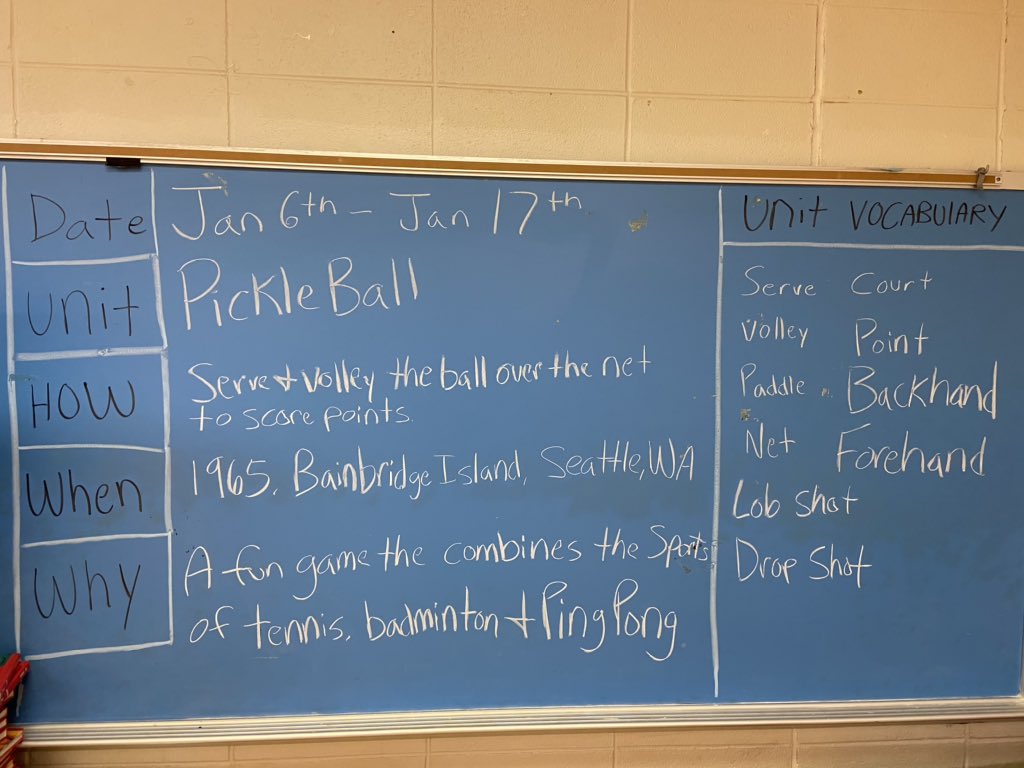 Date
Jan 6th - Jan 17th
Unit
PickleBall
HOW
Serve + Volley the ball over the net
to score points.
When
1965, Bainbridge Island, Seattle, WA
Why
A fun game the combines the Sports
of tennis, badminton + Ping Pong
Unit VOCABULARY
Serve Court
Volley Point
Paddle Backhand
Net Forehand
Lob shot
Drop Shot